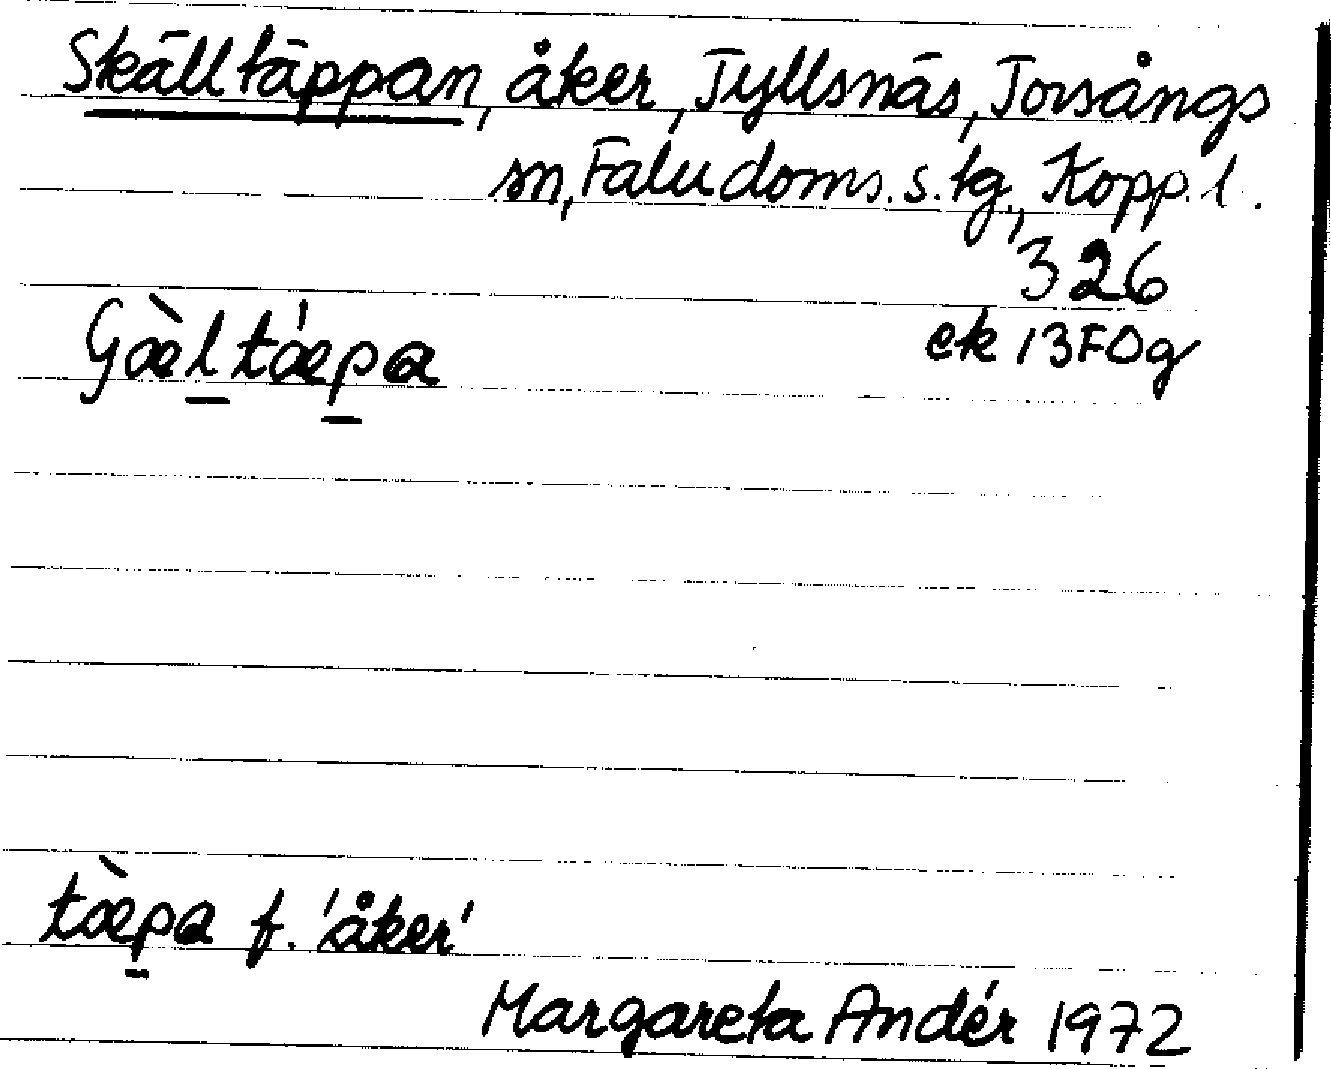 Skälltäppan, åker, Tyllsnäs, Torsångs
sn, Falu doms. s. tg., Kopp. l.
326
ek 13F0g
Gæ̀ltǽpa
tæ̀pa f. 'åker'
Margareta Andér 1972